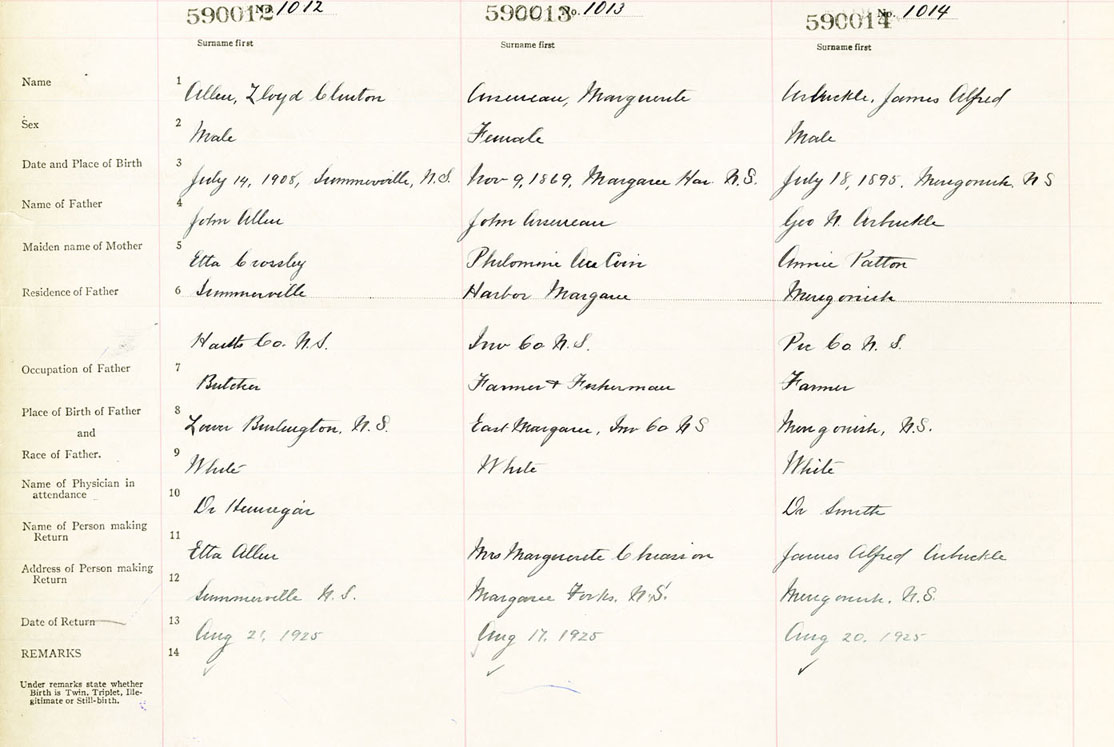 590012 No. 1012 590013 No. 1013 590014 No. 1014
Surname first Surname first Surname first
Name 1 Allen, Lloyd Clinton Arseneau, Marguerite Arbuckle, James Alfred
Sex 2 Male Female Male
Date and Place of Birth 3 July 14, 1908, Summerville, N.S. Nov 9, 1869, Margaree Har. N.S. July 18, 1895, Merigomish N S
Name of Father 4 John Allen John Arseneau Geo N. Arbuckle
Maiden name of Mother 5 Etta Crossley Philomine Annie Patton
Residence of Father 6 Summerville Harbor Margaree Merigomish
Hants Co. N.S. Inv Co N.S. Pic Co N. S.
Occupation of Father 7 Butcher Farmer & Fisherman Farmer
Place of Birth of Father 8 Lower Burlington, N.S. East Margaree, Inv Co N S Merigomish, N.S.
and
Race of Father. 9 White White White
Name of Physician in
attendance 10 Dr Dr Smith
Name of Person making
Return 11 Etta Allen Mrs Marguerite Chiasson James Alfred Arbuckle
Address of Person making
Return 12 Summerville N.S. Margaree Forks, N.S. Merigomish, N.S.
Date of Return 13 Aug 21, 1925 Aug 17, 1925 Aug 20, 1925
REMARKS 14
Under remarks state whether
Birth is Twin, Triplet, Ille-
gitimate or Still-birth.